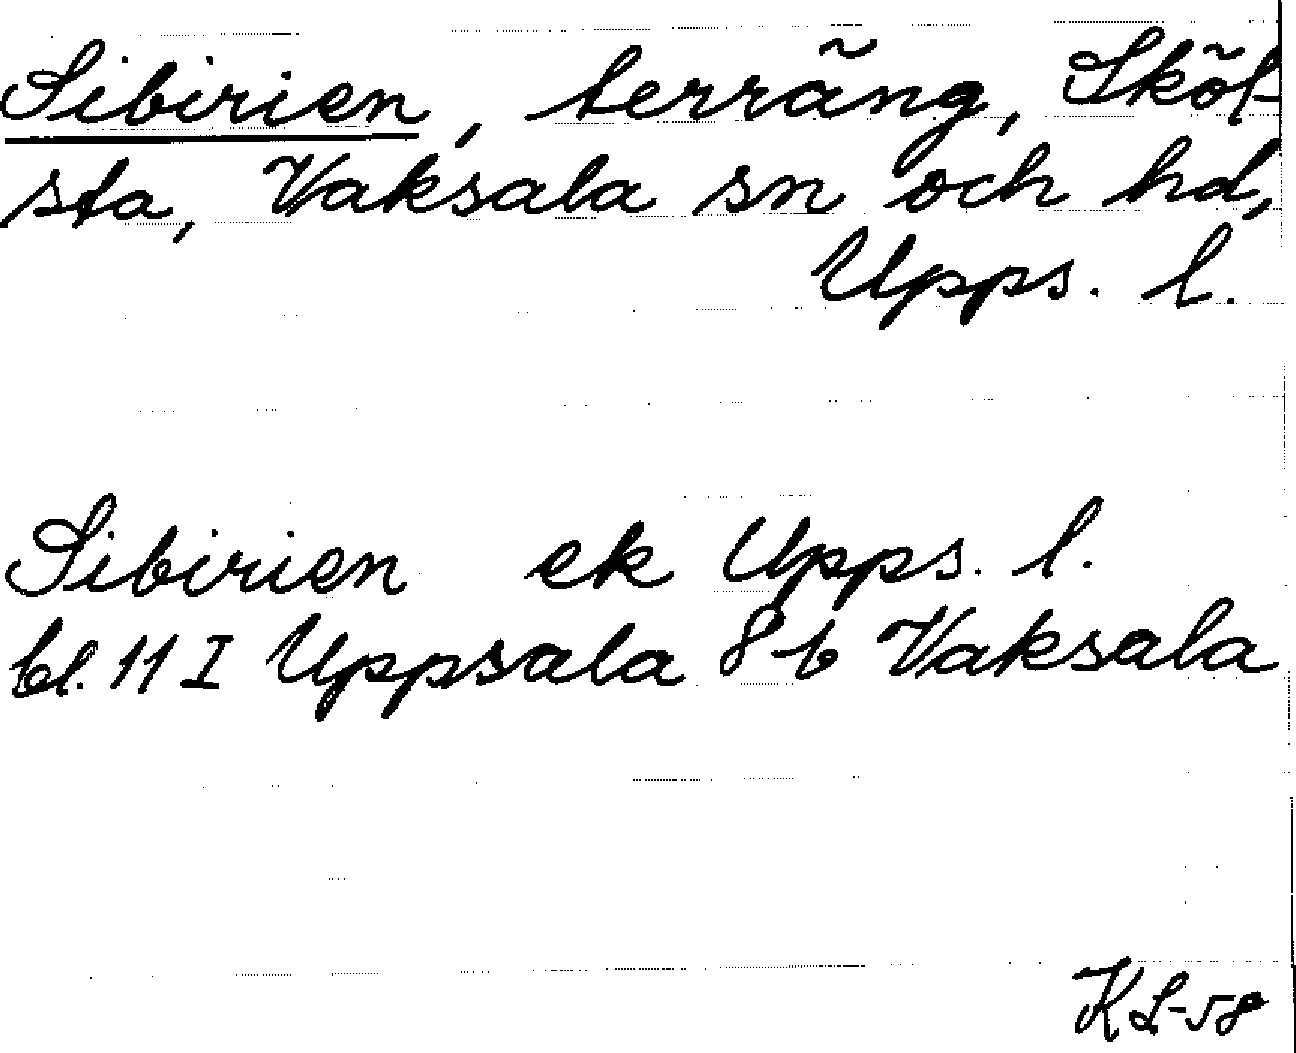 Sibirien, terräng, Sköl-
sta, Vaksala sn och hd,
Upps. l.
Sibirien ek Upps. l.
bl. 11 I Uppsala 8b Vaksala
KL-58